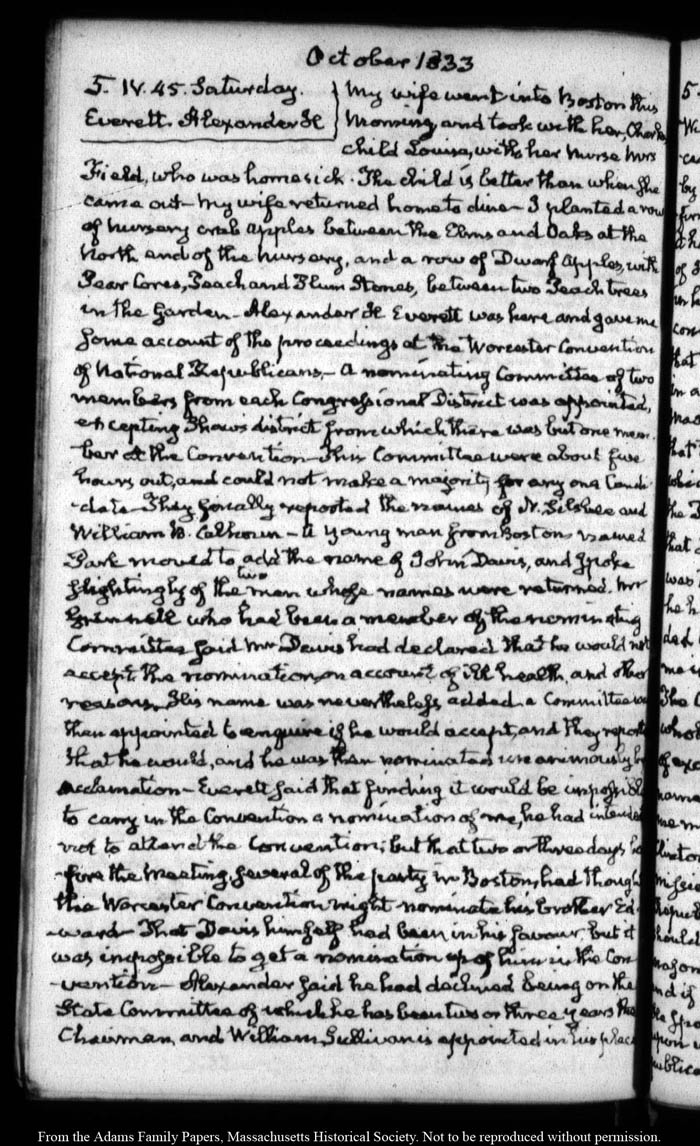 October 1833
5. IV. 45. Saturday.
Everett. Alexander H
My wife went into Boston this
Morning, and took with her, Charles's
child Louisa, with her Nurse Mrs
Field, who was homesick. The child is better than when she
came out— My wife returned home to dine— I planted a row
of nursery crab apples between the Elms and Oaks at the
North end of the nursery, and a row of Dwarf Apples, with
Pear Cores, Peach and Plum Stones, between two Peach trees
in the Garden— Alexander H Everett was here and gave me
some account of the proceedings at the Worcester Convention
of National Republicans— A nominating Committee of two
members from each Congressional District was appointed,
excepting Thaws district from which there was but one mem-
ber at the Convention— This Committee were about five
hours out, and could not make a majority for any one Candi-
-date— They finally reported the names of N. Silsbee and
William B. Calhoun— A young man from Boston named
Park moved to add the name of John Davis, and spoke
slightingly of the two men whose names were returned. Mr
Grennell who had been a member of the nominating
Committee said Mr Davis had declared that he would not
accept the nomination, on account of ill health, and other
reasons. His name was nevertheless added, a Committee was
then appointed to enquire if he would accept, and they reported
that he would, and he was then nominated unanimously by
acclamation— Everett said that finding it would be impossible
to carry in the Convention a nomination of me, he had intended
not to attend the Convention; but that two or three days be-
-fore the meeting, several of the party in Boston, had thought
the Worcester Convention might nominate his brother Ed-
-ward— That Davis himself had been in his favour, but it
was impossible to get a nomination up of him in the Con-
-vention— Alexander said he had declined being on the
State Committee of which he has been two or three years the
Chairman, and William Sullivan is appointed in his place
From the Adams Family Papers, Massachusetts Historical Society. Not to be reproduced without permission.